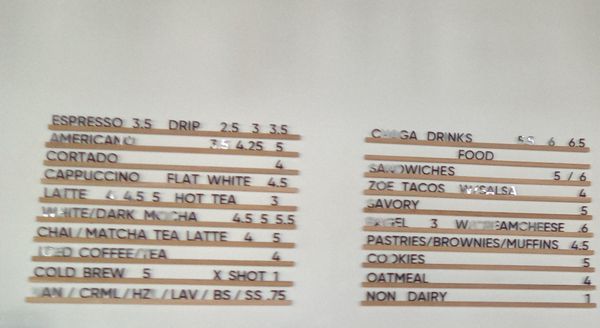 ESPRESSO 3.5 DRIP 2.5 3 3.5
AMERICANO 3.5 4.25 5
CORTADO 4
CAPPUCCINO FLAT WHITE 4.5
LATTE 4 4.5 5 HOT TEA 3
WHITE/DARK MOCHA 4.5 5 5.5
CHAI/MATCHA TEA LATTE 4 5
ICED COFFEE/TEA 4
COLD BREW 5 X SHOT 1
/ CRML / HZL / LAV / BS / SS .75
CHAGA DRINKS 6 6.5
FOOD
SANDWICHES 5 / 6
ZOE TACOS W/SALSA 4
SAVORY 5
BAGEL 3 W/CREAMCHEESE .6
PASTRIES/BROWNIES/MUFFINS 4.5
COOKIES 5
OATMEAL 4
NON DAIRY 1